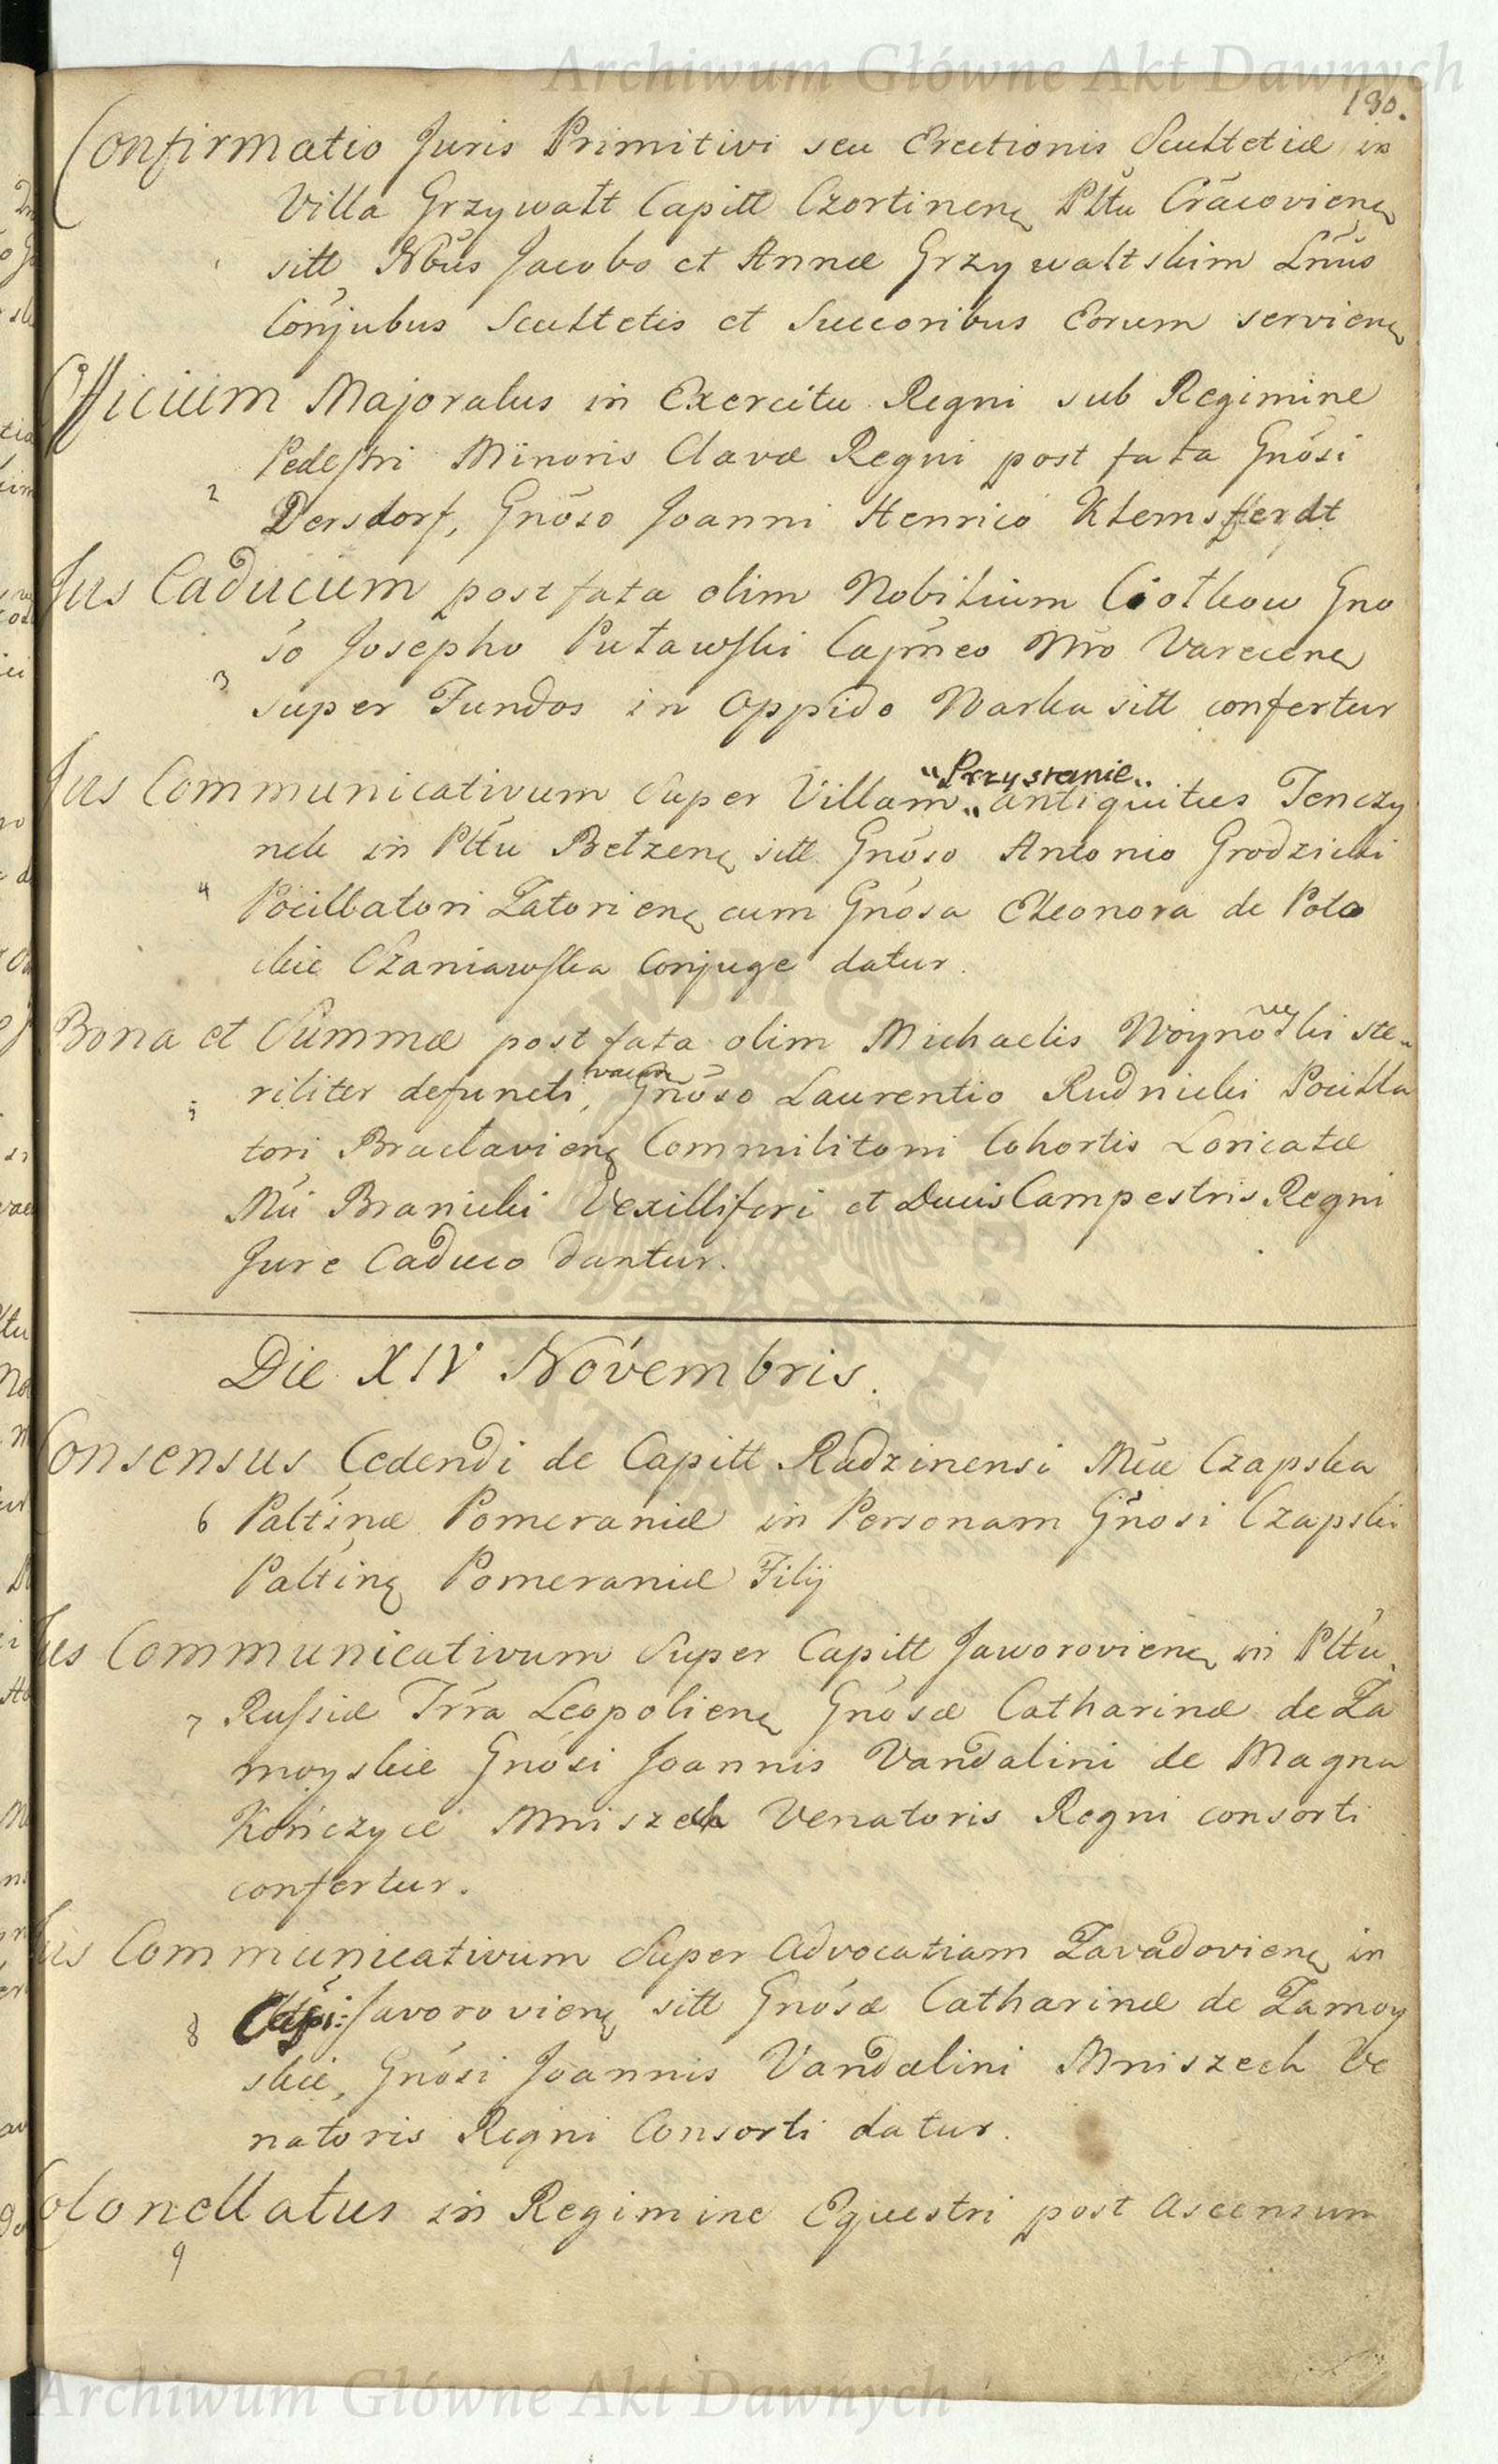 Archiwum Główne Akt Dawnych
130.
Confirmatio Juris Primitivi seu Erectionis Scultetiæ in
Villa Grzywałt Capitt Czortinenę Plttu Cracovienę
1 sitt, Nbus Jacobo et Annæ Grzywaltskim Lnus
Conjubus Scultetis et Succoribus Eorum servienę
Officium Majoratus in Exercitu Regni sub Regimine
Pedestri Minoris Clavæ Regni post fata Gnosi
2 Dersdorf, Gnoso Joanni Henrico Klemsfferdt
Jus Caducum post fata olim Nobilium Ciołkow Gno
so Josepho Puławski Capneo Nro Varecenę
3 super Fundos in Oppido Warka sitt confertur
"Przystanie"
Jus Communicativum Super Villam „ antiquitus Tenczy
nek in Plttu Bełzenę sitt Gnoso Antonio Grodzicki
4 Pocillatori Zatorienę cum Gnosa Eleonora de Poło
ckie Chaniawska Conjuge datur.
Bona et Summæ post fata olim Michaelis Woynowski ste-
riliter defuncti, vacan Gnoso Laurentio Rudnicki Pocilla
5 tori Braclavienę Commilitoni Cohortis Loricatæ
Mci Branicki Vexilliferi et Ducis Campestris Regni
Jure Caduco Dantur.
Die XIV Novembris.
Consensus Cedendi de Capitt Radzinensi Mcæ Czapska
6 Paltinæ Pomeraniæ in Personam Gnosi Czapski
Paltinę Pomeraniæ Filij
Jus Communicativum Super Capitt Jaworovienę in Plttu
7 Russiæ Trra Leopolienę Gnosæ Catharinæ de Za
moyskie Gnosi Joannis Vandalini de Magna
Kończyce Mniszech Venatoris Regni consorti
confertur.
Jus Communicativum Super Advocatiam Zavadovienę in
8 Capi: Javorovienę sitt Gnosæ Catharinæ de Zamoy
skie, Gnosi Joannis Vandalini Mniszech Ve
natoris Regni Consorti datur.
Colonellatus in Regimine Equestri post Ascensum
9
Archiwum Główne Akt Dawnych